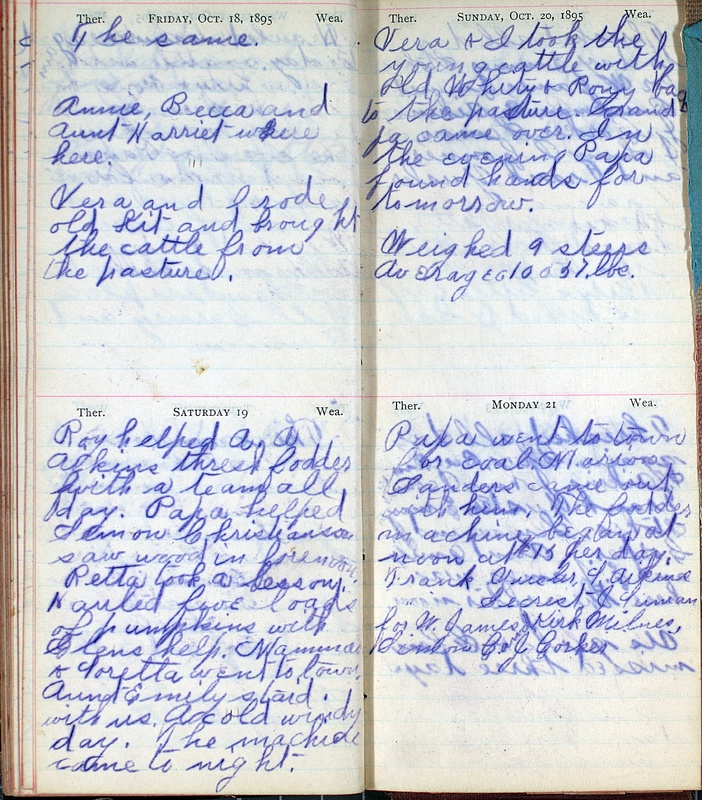 Ther. FRIDAY, OCT. 18, 1895 Wea.
The same.
Annie, Becca and
Aunt Harriet where
here.
Vera and I rode
old Kit and brought
the cattle from
the pasture.
Ther. SATURDAY 19 Wea.
Roy helped A. A.
Alkins thresh fodder
with a team all
day. Papa helped
Lemon Christianson
saw wood in forenoon.
Retta took a lesson.
Hauled five loads
of pumpkins with
Glens help. Mamma
& Loretta went to town.
Aunt Emily staid
with us. A cold windy
day. The machine
came to night.
Ther. SUNDAY, OCT. 20, 1895 Wea.
Vera & I took the
young cattle with
Old Whity & Rony back
to the pasture. Grand
pa came over. In
the evening Papa
found hands for
tomorrow.
Weighed 9 steers
Averaged 1057 lbs.
Ther. MONDAY 21 Wea.
Papa went to town
for coal. Marion
Sanders came out
with him. The fodder
machine began at
noon at $15 per day.
Frank
Secrest
for W. James, Kirk Milnes,